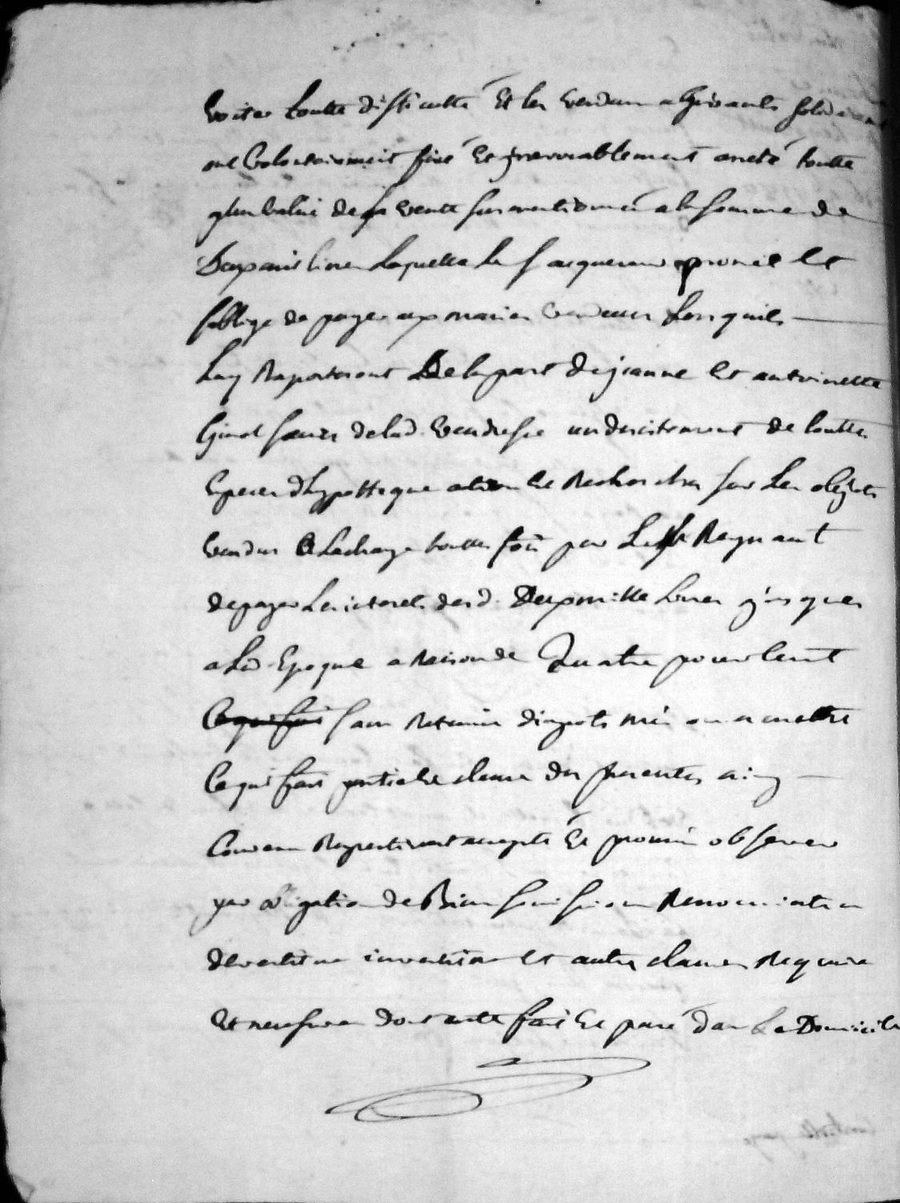 Eviter toutte difficulté Et les vendeurs
ont volontairement fixé Et irrevocablement areté toutte
plus value de la vente surmentionnée a la somme de
Deux mil livres Laquelle Le promet Et
soblige de payer aux mariés vendeurs Lorsquils
Luy Raporteront De la part de jeanne Et antoinette
Ginot seurs de lad. venderesse un desistement de toutte
Espece dhypotteque action Et Recherches sur Les objets
vendus a La charge touttes fois par Led. Reynaut
de payer Les interets desd. Deux mille Livres jusques
a Lad. Epoque a Raison de quatre pour cent
Ce qui fait sans Retenue dimpots mis ou a mettre
Ce qui fait partie Et clause des presentes ainsy
Convenu Respectivement accepté Et promis observer
par obligation de Biens soumission Renonciation
devestiture investiture Et autres clauses Requises
Et necessaires dont acte fait Et passé dans Le Domicile